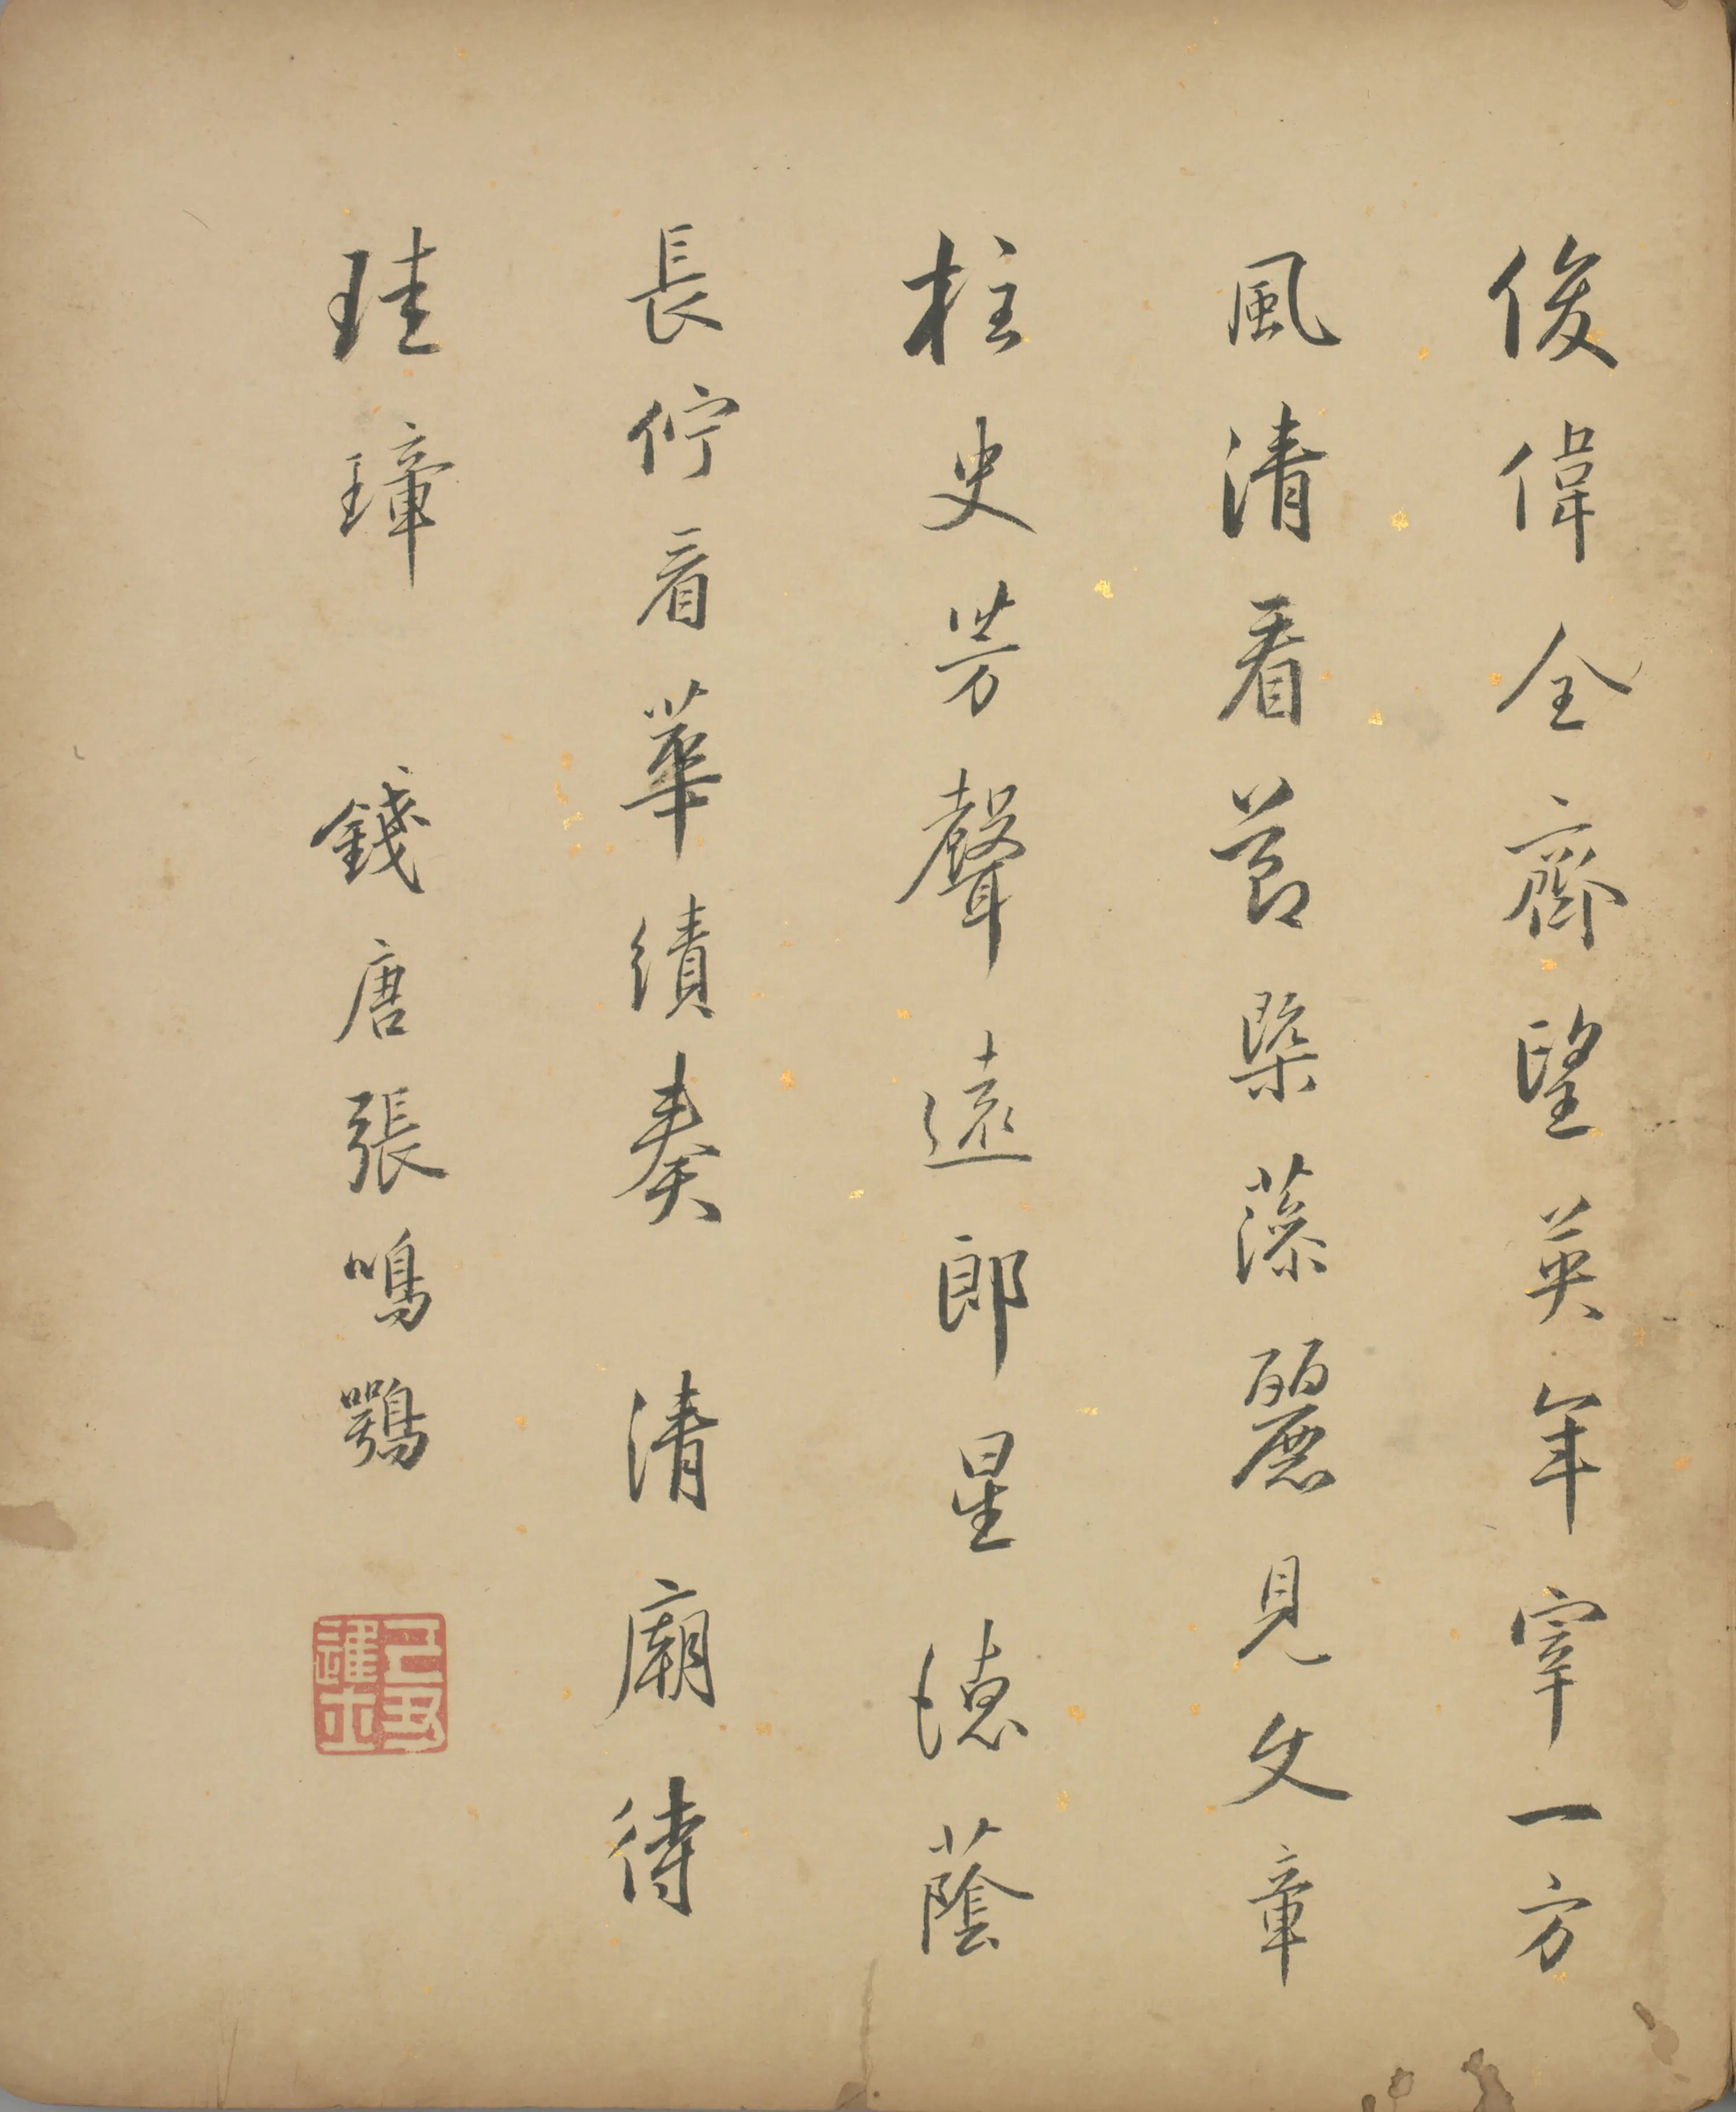 俊偉全齊望英年宰一方
風清看節槩藻麗見文章
柱史芳聲遠郎星德蔭
長佇看華績奏 清廟待
珪璋 錢唐張鳴鶚
己丑進士